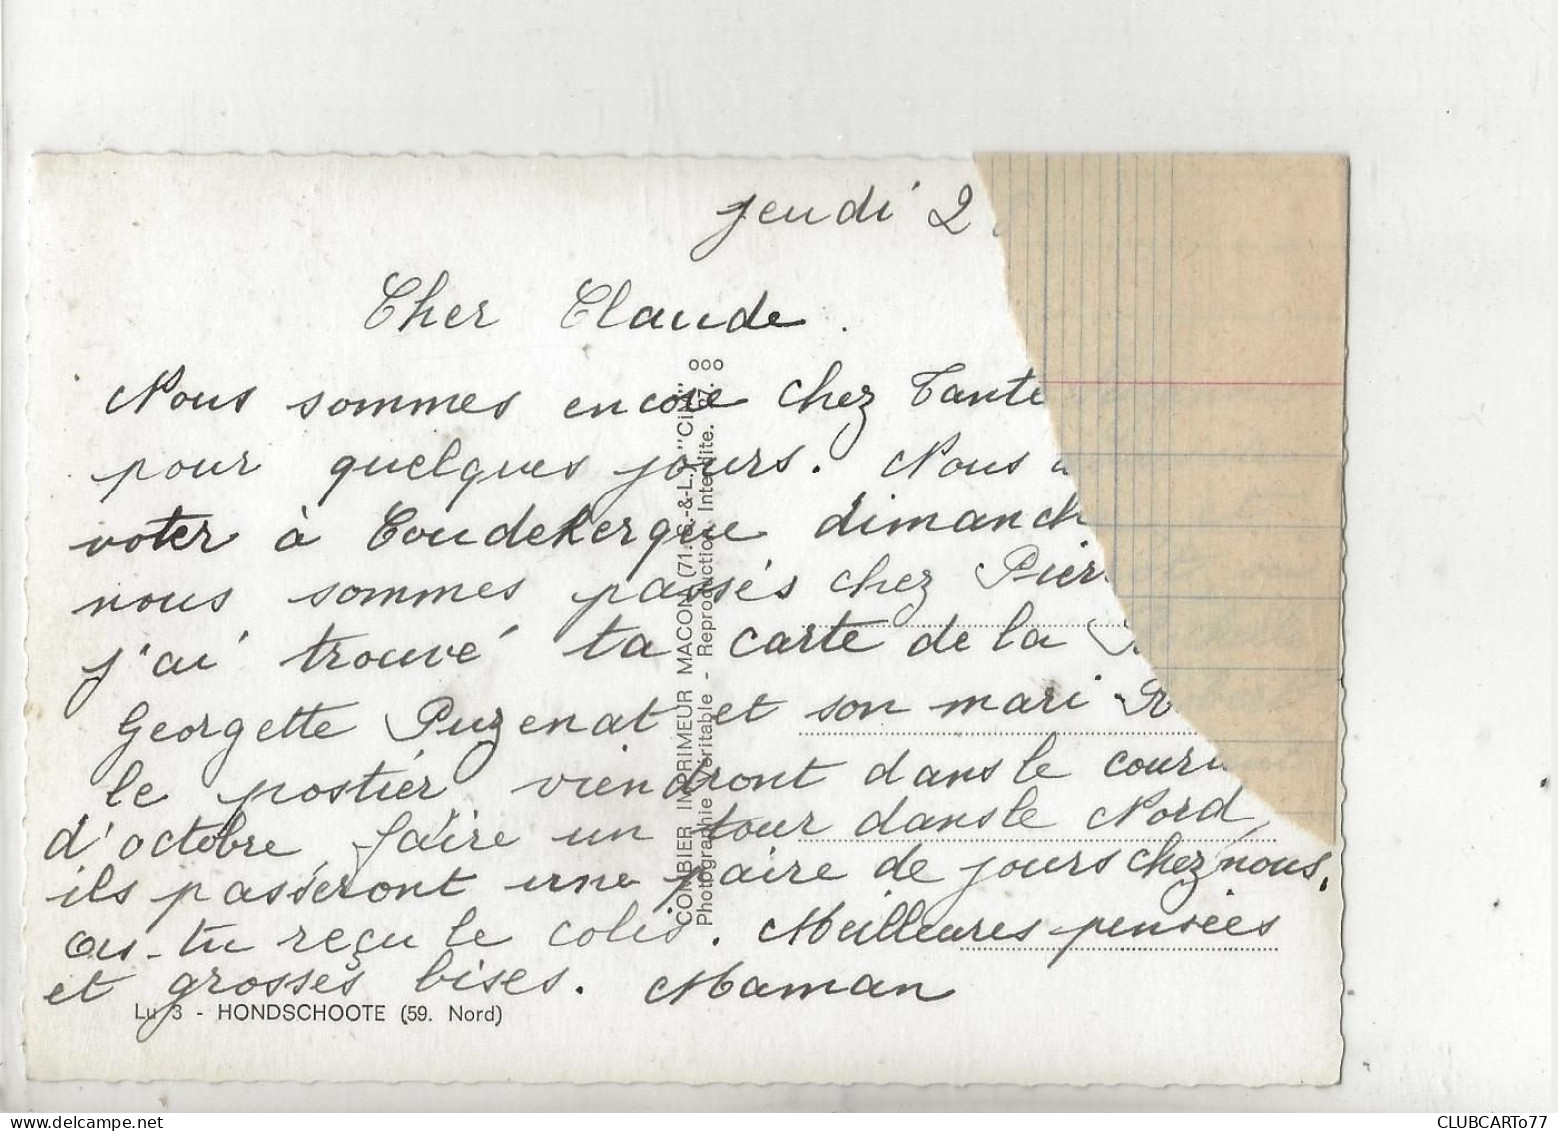 jeudi 2
Cher Claude.
Nous sommes encore chez Tante
pour quelques jours. Nous
voter à Coudekerque dimanch
nous sommes passés chez Pier
j'ai trouvé ta carte de la
Georgette Puzenat et son mari
le postier viendront dans le coura
d'octobre, faire un tour dans le Nord,
ils passeront une paire de jours chez nous.
As-tu reçu le colis. Meilleures pensées
et grosses bises. Maman
Lu 3 - HONDSCHOOTE (59. Nord)
COMBIER IMPRIMEUR MACON (71.S.-&-L.) "CIM"
Photographie Véritable - Reproduction Interdite. ooo
CLUBCARTO77